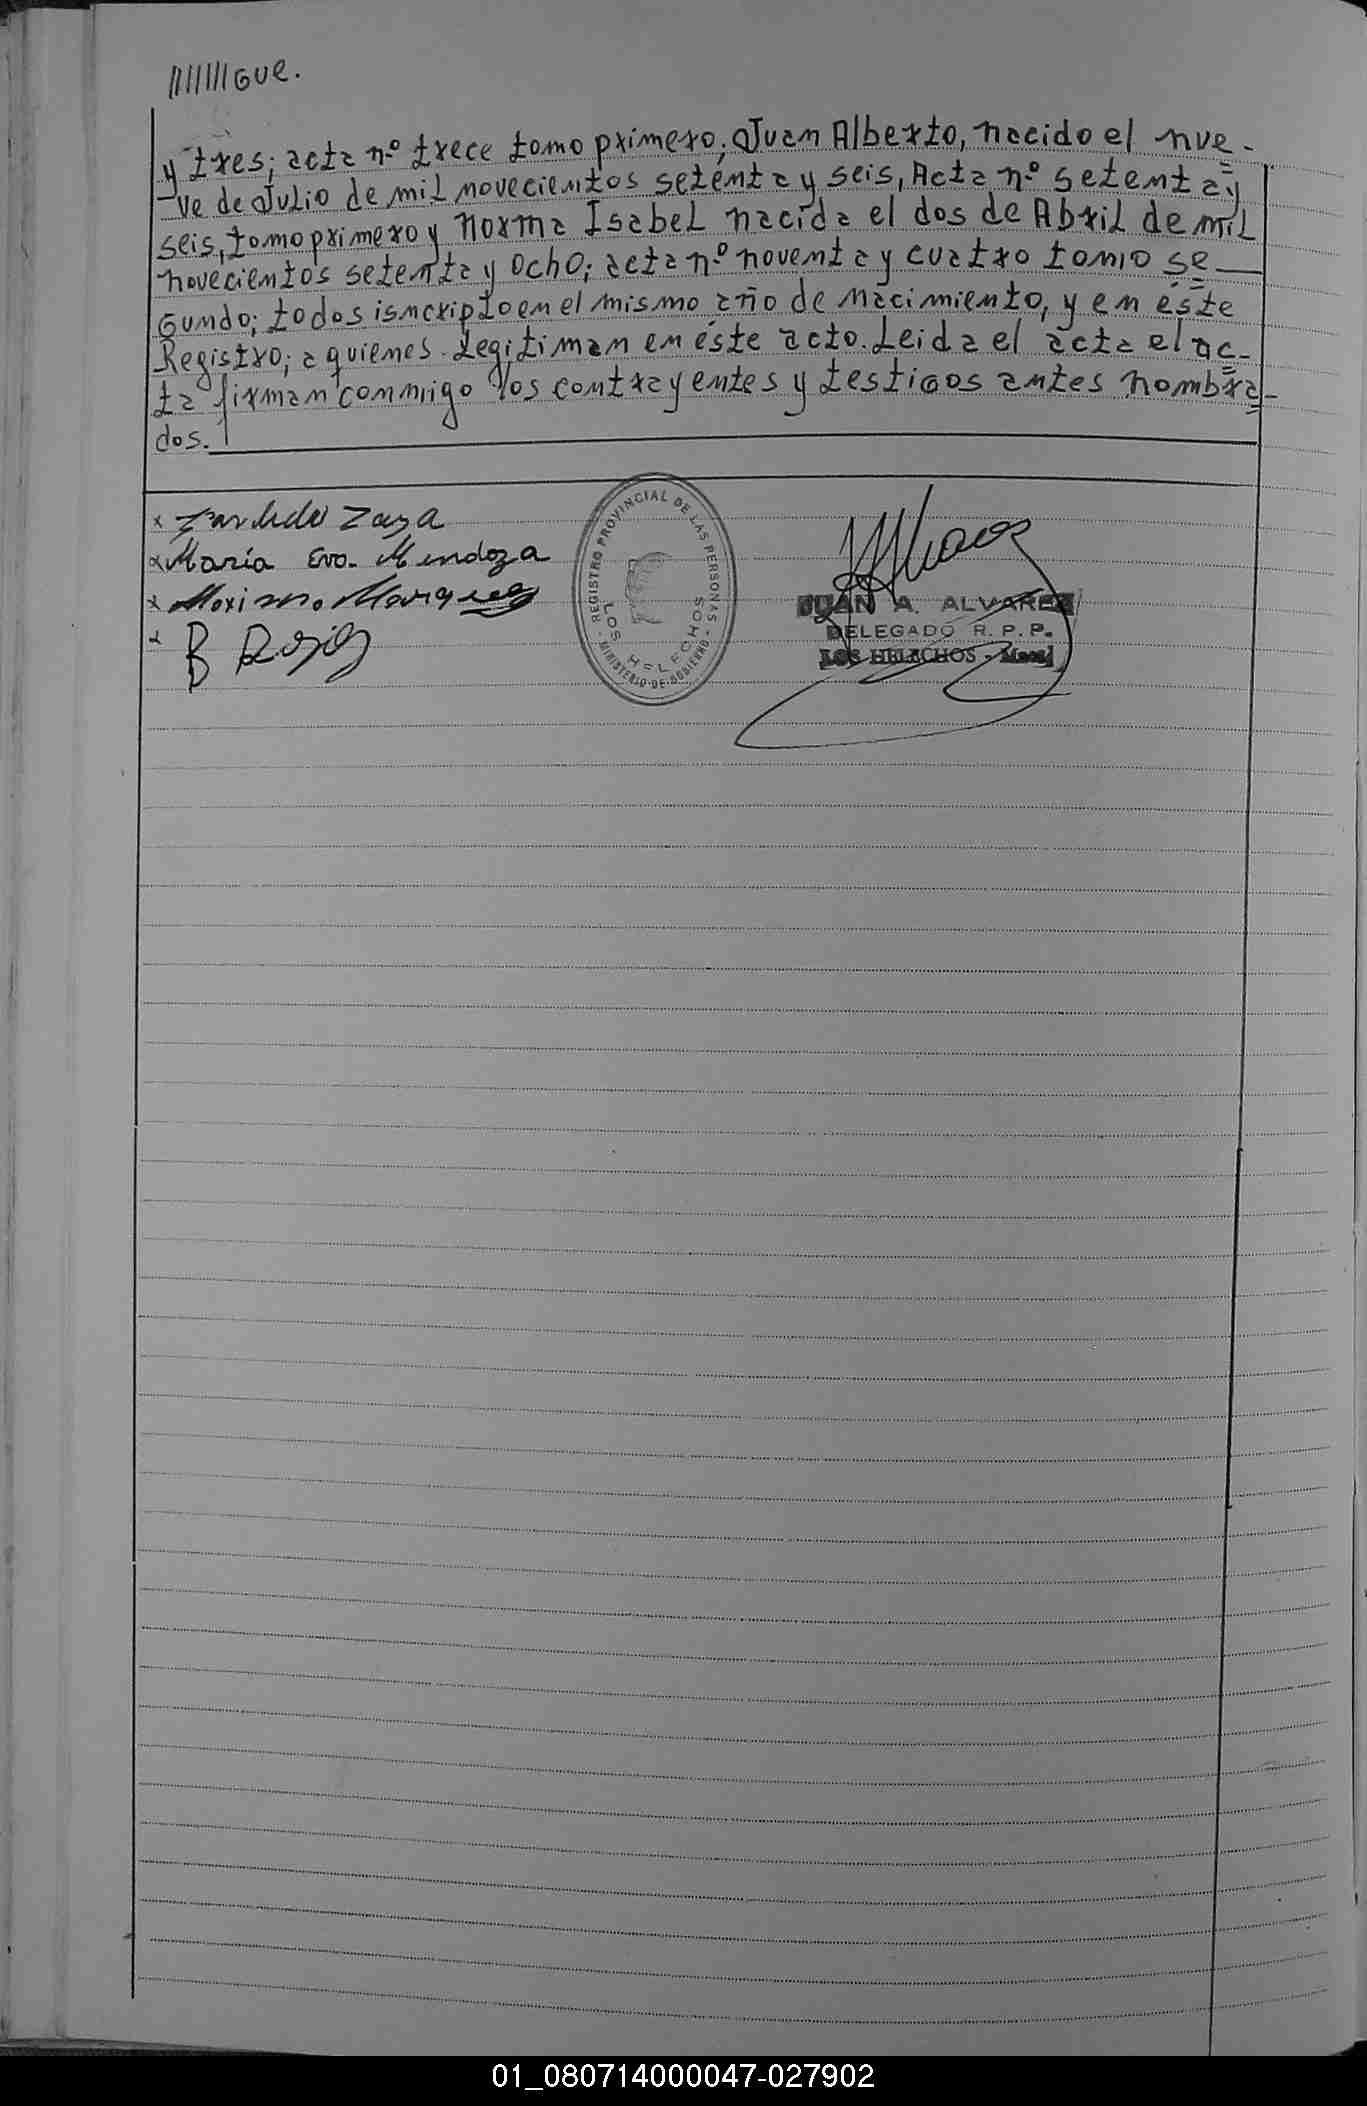 ///////GUE.
y tres; acta nº trece tomo primero; Juan Alberto, nacido el nue-
-ve de Julio de mil novecientos setenta y seis, Acta nº setenta y
seis, tomo primero y Norma Isabel nacida el dos de Abril de mil
novecientos setenta y ocho; acta nº noventa y cuatro tomo se
gundo; todos isncripto en el mismo año de nacimiento, y en éste
Registro; a quienes legitiman en éste acto. Leida el acta el ac-
ta firman conmigo los contrayentes y testigos antes nombra-
dos.
x Zaya
x María Eva Mendoza
x Maximo Marquez
x B Rojas
REGISTRO PROVINCIAL DE LAS PERSONAS
LOS HELECHOS
MINISTERIO DE GOBIERNO
JUAN A. ALVAREZ
DELEGADO R. P. P.
LOS HELECHOS - Mnes.
01_080714000047-027902